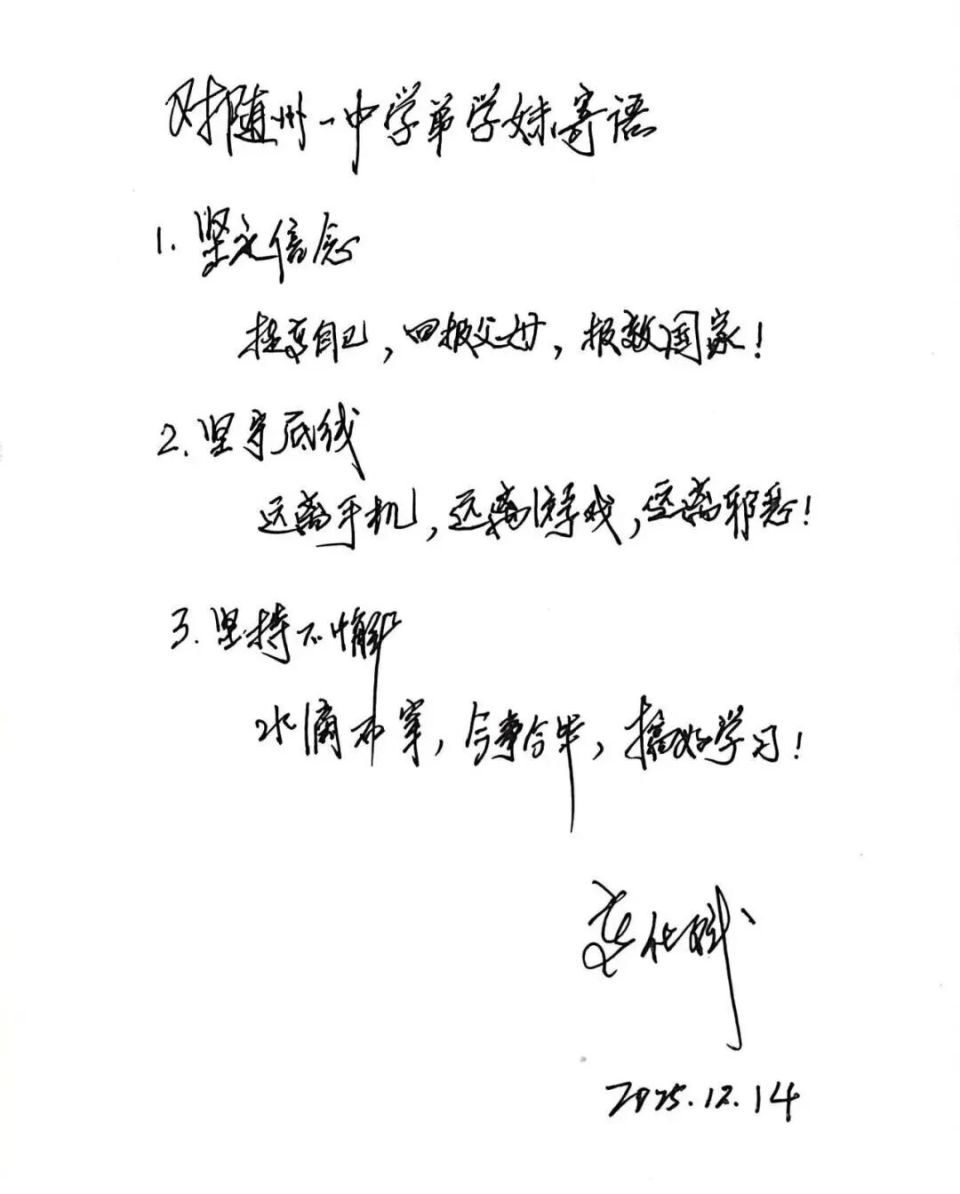 对随州一中学弟学妹寄语
1. 坚定信念
提高自己，回报父母，报效国家！
2. 坚守底线
远离手机，远离游戏，远离邪恶！
3. 坚持不懈
水滴石穿，今事今毕，搞好学习！
2025.12.14